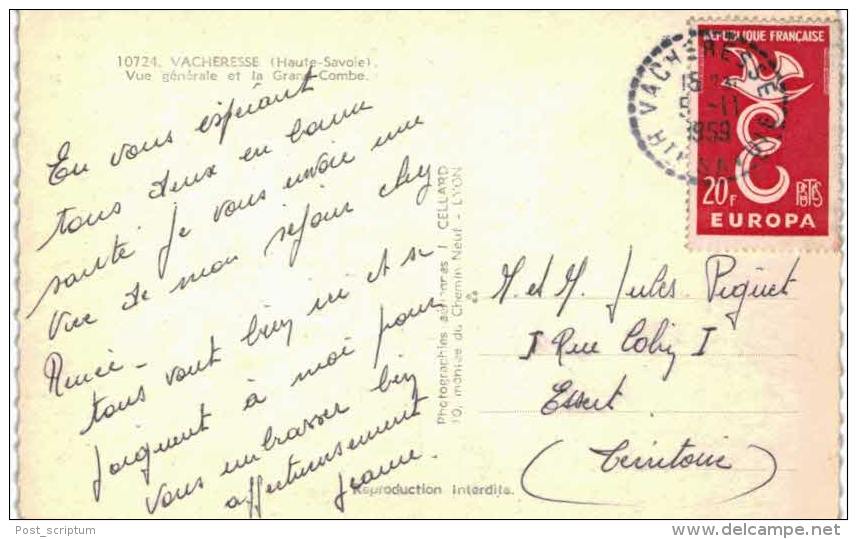 10724. VACHERESSE (Haute-Savoie).
Vue générale et la Grand-Combe.
En vous espérant
tous deux en bonne
santé je vous envoie une
vue de mon séjour chez
Renée -
tous vont bien ici et se
joignent à moi pour
vous embrasser bien
affectueusement
Jeanne.
Photographies aériennes J. CELLARD
10, montée du Chemin Neuf - LYON
Reproduction Interdite.
RÉPUBLIQUE FRANÇAISE
20F
POSTES
EUROPA
VACHERESSE
-11
1959
M. et M. Jules Piguet
Rue
Essert
(Territoire)
Post_scriptum
www.delcampe.net